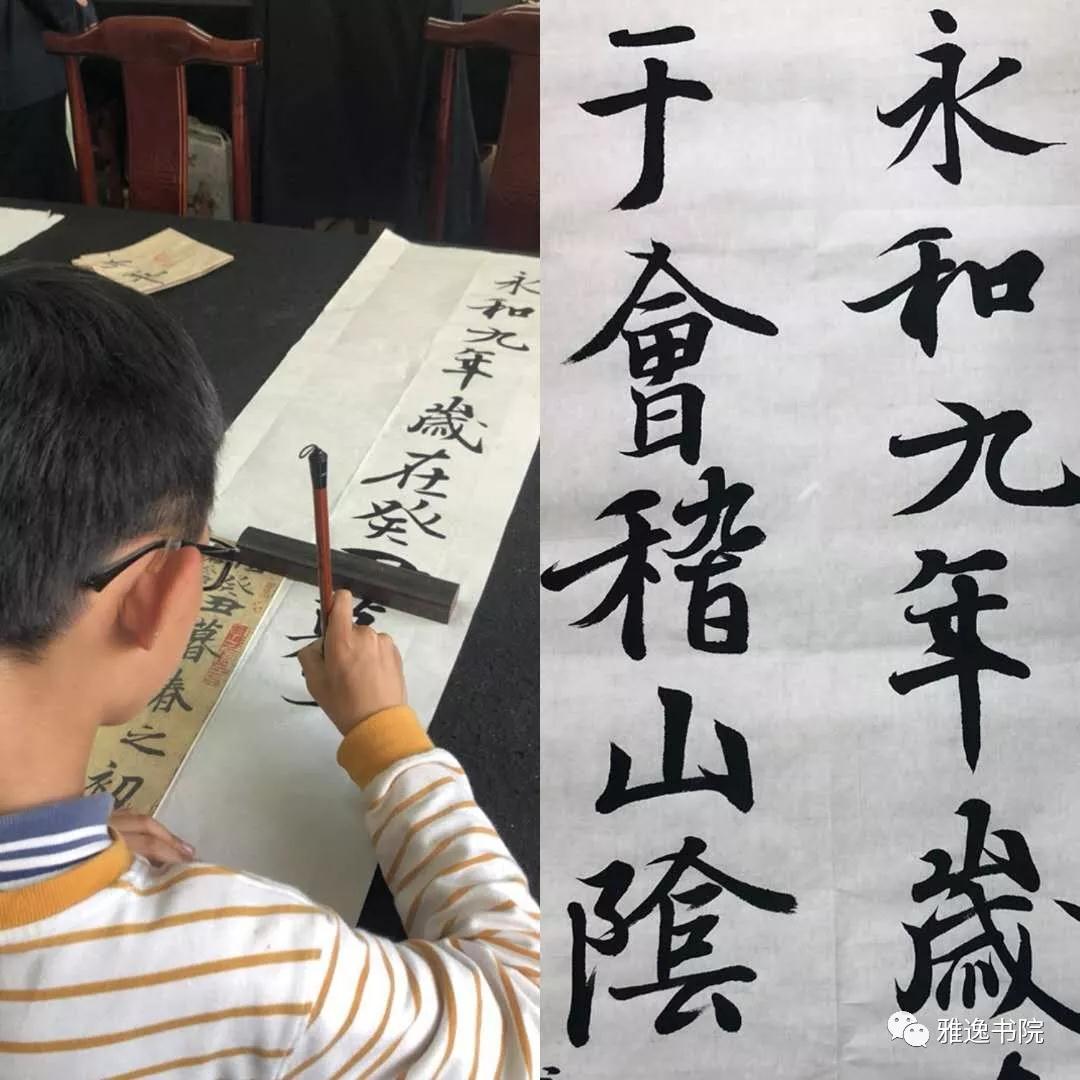 永和九年歲在癸
癸丑暮春之初
永和九年歲
于會稽山陰
雅逸书院